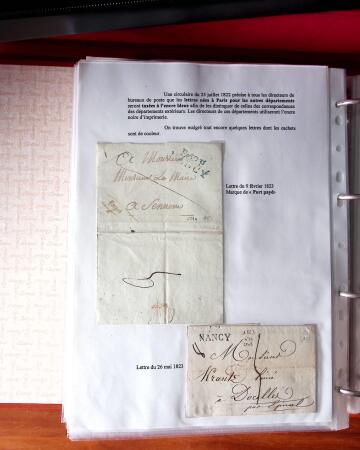 Une circulaire du 25 juillet 1822 précise à tous les directeurs de
bureaux de poste que les lettres nées à Paris pour les autres départements
seront taxées à l'encre bleue afin de les distinguer de celles des correspondances
des départements extérieurs. Les directeurs de ces départements utiliseront l'encre
noire d'imprimerie.
On trouve malgré tout encore quelques lettres dont les cachets
sont de couleur.
A Monsieur
Monsieur Le Maire
a
Lettre du 9 février 1823
Marque de « Port payé»
NANCY
Monsieur
Lettre du 26 mai 1823
Curé
à Docelles
par Epinal